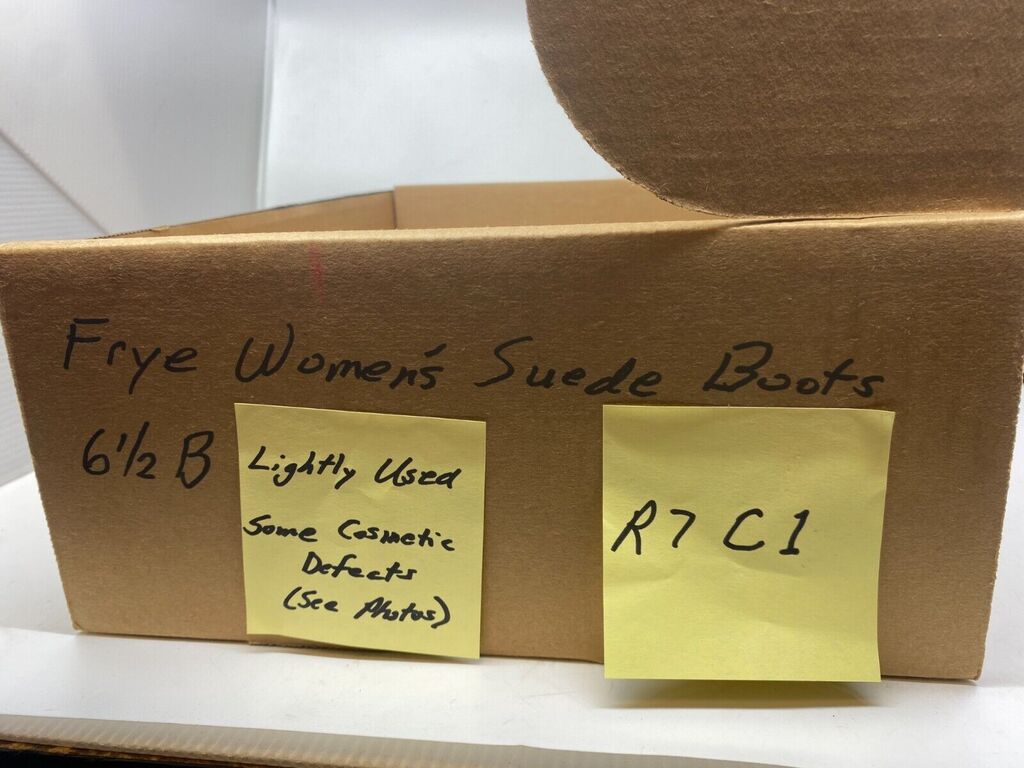 Frye Women's Suede Boots
6 1/2 B
Lightly Used
Some Cosmetic
Defects
(See Photos)
R7 C1